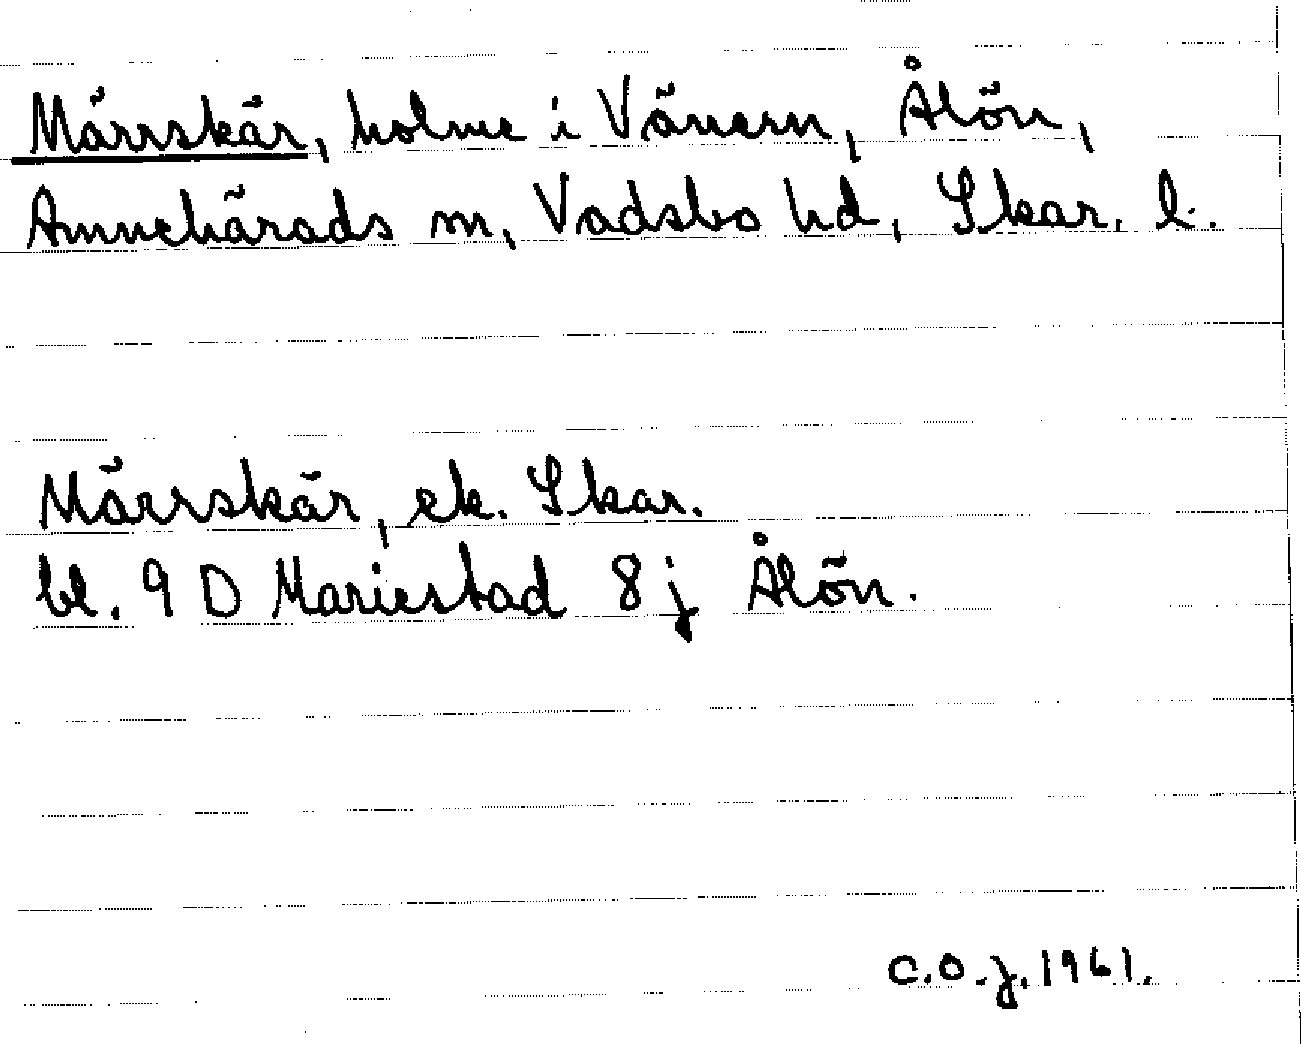 Märrskär, holme i Vänern, Ålön,
Amnehärads sn, Vadsbo hd, Skar. l.
Märrskär, ek. Skar.
bl. 9 D Mariestad 8 j Ålön.
C.O.J. 1961.